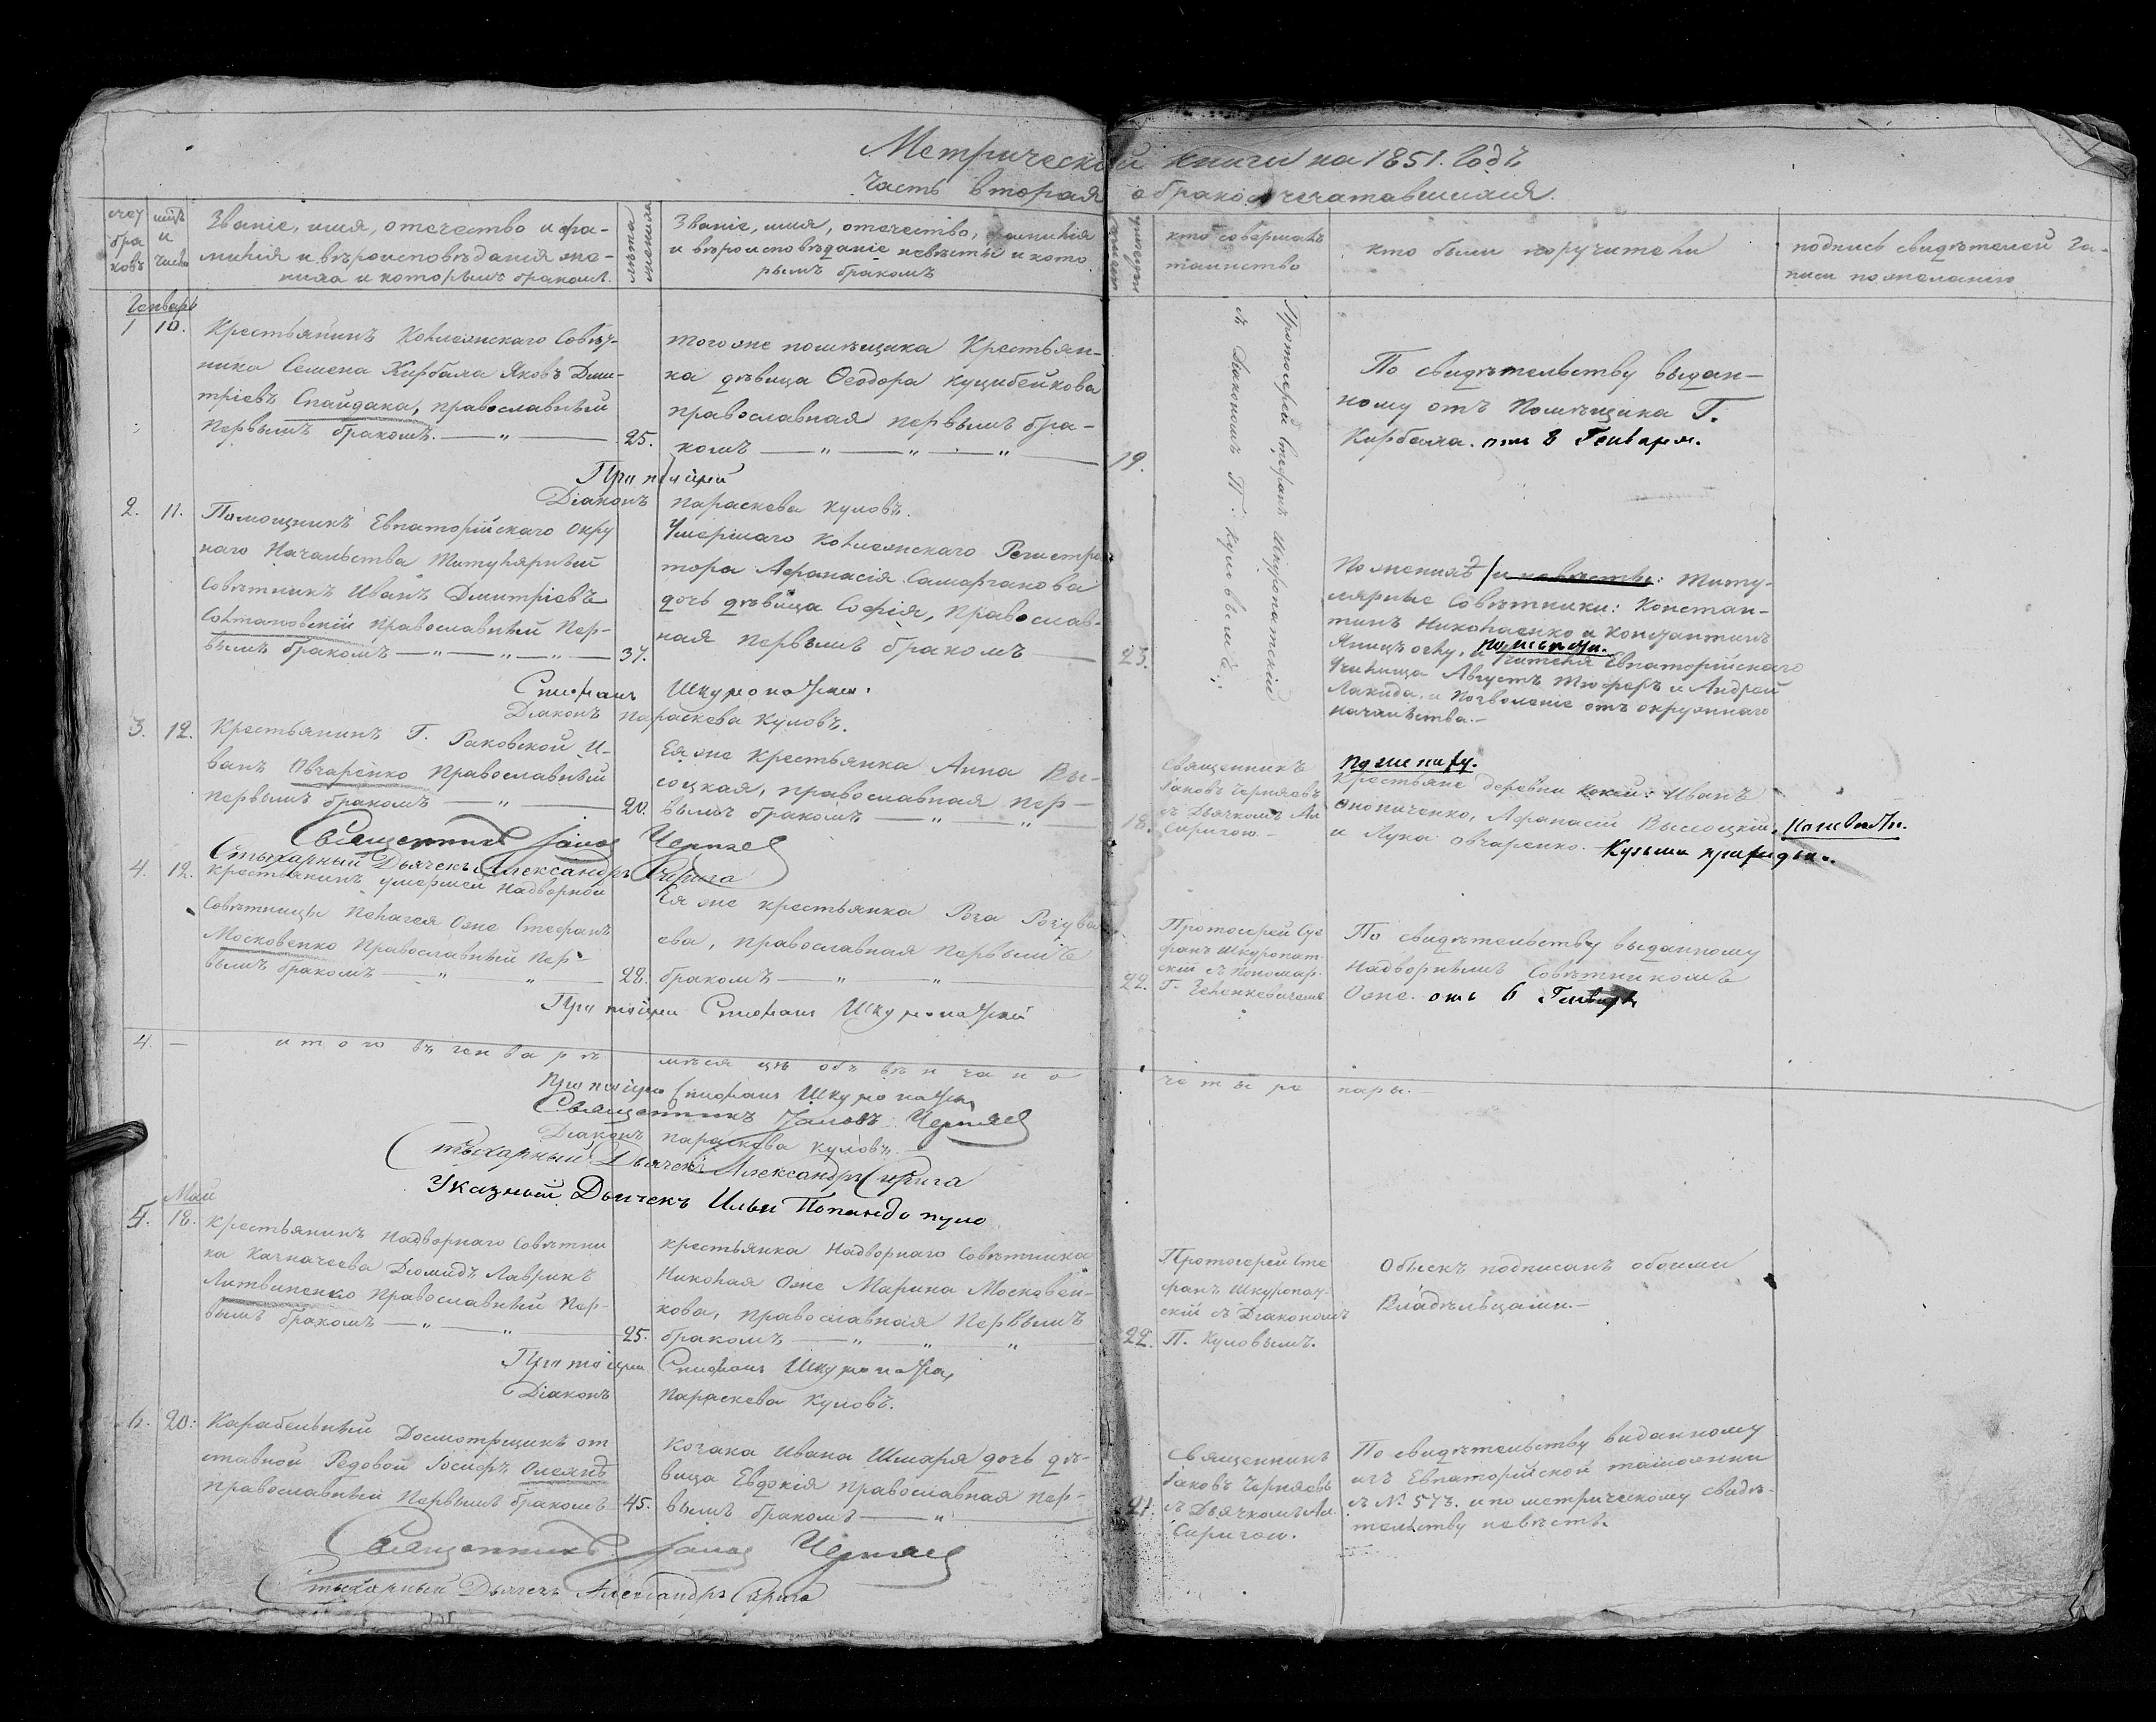 Метрической книги на 1851. Годъ
Часть вторая о бракосочетавшихся.
счет браковъ
мцъ и число
Званіе, имя, отечество и фа-
милія и вѣроисповѣданія же-
ниха и которымъ бракомъ.
лѣта жениха
Званіе, имя, отечество, фамилія
и вѣроисповѣданіе невѣсты и кото
рымъ бракомъ
кто совершалъ
таинство
кто были поручители
подпись свидѣтелей за-
писи по желанію
Генварь
1 10.
КрестьянинъКоллежскаго Совѣт-
ника Семена Кирбала Яковъ Дми-
тріевъ Спайдака, православный
первымъ бракомъ. 25.
тогоже помѣщика Крестьян-
ка дѣвица Ѳеодора Куцибейкова
православная первымъ бра-
комъ
19.
Протоіерей Стефанъ Шкуропатскій
съ Діакономъ П. Куловымъ
По свидѣтельству выдан-
ному отъ Помѣщика Г.
Кирбала. отъ 8 Генваря.
Діаконъ Параскева Куловъ.
2. 11.
Помощникъ Евпаторійскаго Окру
наго Начальства Титулярный
Совѣтникъ Иванъ Дмитріевъ
Солтановскій православный пер-
вымъ бракомъ 37.
Умершаго Коллежскаго Регистра
тора Афанасія Самарганова
дочь дѣвица Софія, Православ-
ная первымъ бракомъ
23.
По женихѣ и невѣстѣ: Титу-
лярные Совѣтники: Констан-
тинъ Николаенко и Константинъ
учителя Евпаторійскаго
Училища Августъ и Андрей
Лакида, и Позволеніе отъ окружнаго
начальства.
Стефанъ Шкуропатскій.
Діаконъ Параскева Куловъ.
3. 12.
Крестьянинъ Г. Раковской И-
ванъ Овчаренко Православный
первымъ бракомъ 20.
Ея же Крестьянка Анна Вы-
соцкая, православная пер-
вымъ бракомъ
18.
Священникъ
Іаковъ Черняевъ
съ Дьячкомъ Ал
Сиригою.
по жениху.
Крестьяне деревни Иванъ
Афанасій Высоцкій,
и Лука Овчаренко.
Священникъ Іаковъ Черняевъ
Стихарный Дьячекъ Александръ Сирига
4. 12.
Крестьянинъ умершей Надворной
Совѣтницы Пелагея Стефанъ
Московенко Православный пер-
вымъ бракомъ 22.
Ея же крестьянка
ева, православная первымъ
бракомъ
22.
Протоіерей Сте
фанъ Шкуропат-
скій съ Пономар.
По свидѣтельству выданному
Надворнымъ Совѣтникомъ
отъ 6 Генваря
Протоіерей Стефанъ Шкуропатскій
4. итого въ генварѣ мѣсяцѣ обвѣнчано четыре пары.
Протоіерей Стефанъ Шкуропатскій
Священникъ Іаковъ Черняевъ
Діаконъ Параскева Куловъ.
Стихарный Дьячекъ Александръ Сирига
Указный Дьячекъ Илья Попандопуло
Май
5. 18.
Крестьянинъ Надворнаго Совѣтни
ка Качначеева Діомидъ Лаврикъ
Литвиненко Православный пер-
вымъ бракомъ 25.
крестьянка Надворнаго Совѣтника
Николая Марина Московен-
кова, Православная Первымъ
бракомъ
22.
Протоіерей Сте
фанъ Шкуропат-
скій съ Діакономъ
П. Куловымъ.
Обыскъ подписанъ обоими
Владѣльцами.
Протоіерей Стефанъ Шкуропатскій
Діаконъ Параскева Куловъ.
6. 20.
Карабельный Досмотрщикъ от
ставной Редовой Іосифъ
православный Первымъ бракомъ 45.
Козака Ивана Шмаря дочь дѣ-
вица Евдокія православная пер-
вымъ бракомъ
21.
Священникъ
Іаковъ Черняевъ
съ Дьячкомъ Ал.
Сиригою.
По свидѣтельству виданному
изъ Евпаторійской таможни
съ № 573. и по метрическому свидѣ-
тельству невѣстѣ.
Священникъ Іаковъ Черняевъ
Стихарный Дьячекъ Александръ Сирига